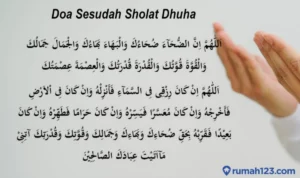 Doa Sesudah Sholat Dhuha
اَللّٰهُمَّ اِنَّ الضُّحَآءَ ضُحَاءُكَ وَالْبَهَاءَ بَهَاءُكَ وَالْجَمَالَ جَمَالُكَ
وَالْقُوَّةَ قُوَّتُكَ وَالْقُدْرَةَ قُدْرَتُكَ وَالْعِصْمَةَ عِصْمَتُكَ
اَللّٰهُمَّ اِنْ كَانَ رِزْقِى فِى السَّمَآءِ فَأَنْزِلْهُ وَاِنْ كَانَ فِى اْلاَرْضِ
فَأَخْرِجْهُ وَاِنْ كَانَ مُعَسَّرًا فَيَسِّرْهُ وَاِنْ كَانَ حَرَامًا فَطَهِّرْهُ وَاِنْ كَانَ
بَعِيْدًا فَقَرِّبْهُ بِحَقِّ ضُحَاءِكَ وَبَهَاءِكَ وَجَمَالِكَ وَقُوَّتِكَ وَقُدْرَتِكَ آتِنِىْ
مَآاٰتَيْتَ عِبَادَكَ الصَّالِحِيْنَ
rumah123.com